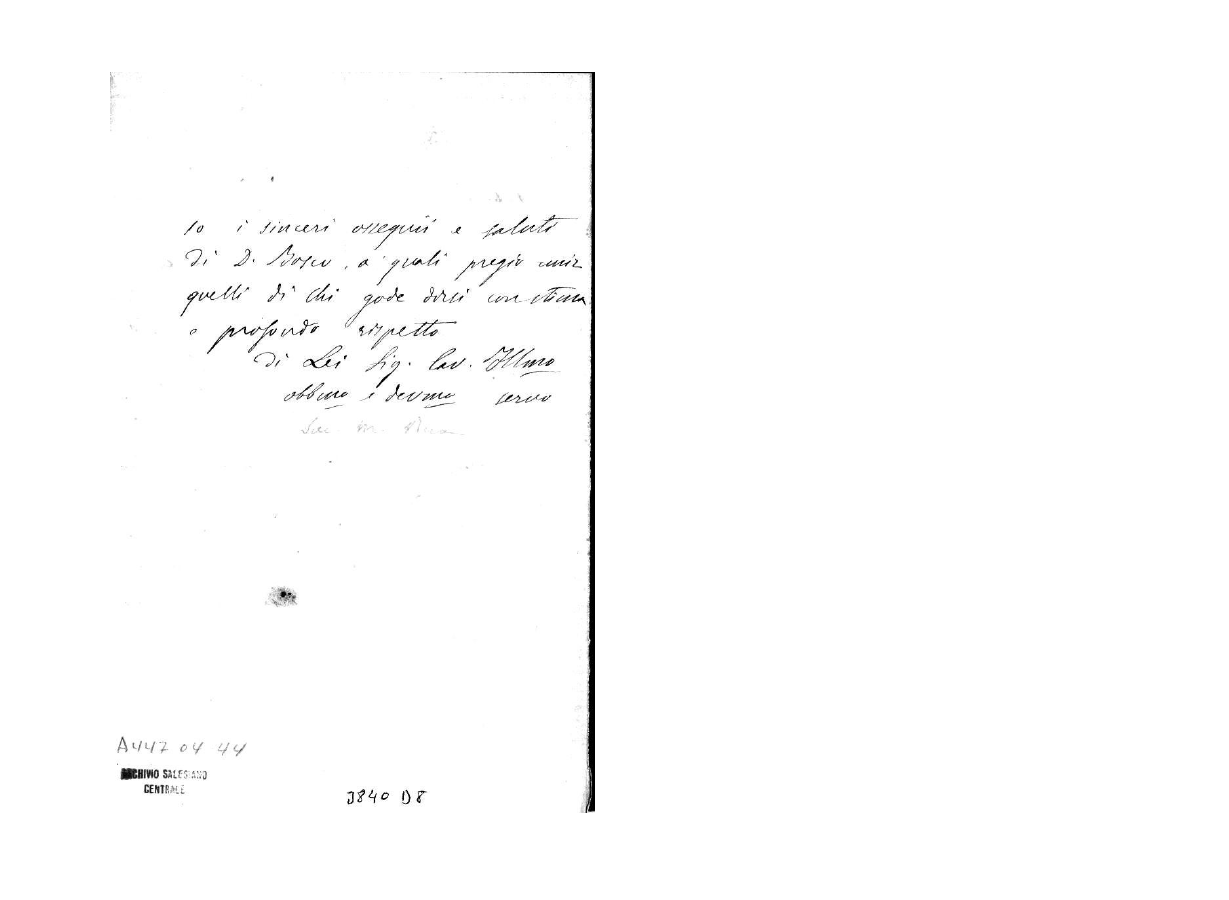 so i sinceri ossequii e saluti
di D. Bosco, a' quali pregio unir
quelli di chi gode dirsi con stima
e profondo rispetto
di Lei Sig. Cav. Illmo
obbmo e devmo servo
Sac. M. Rua
A447 04 44
ARCHIVIO SALESIANO
CENTRALE
3840 D8